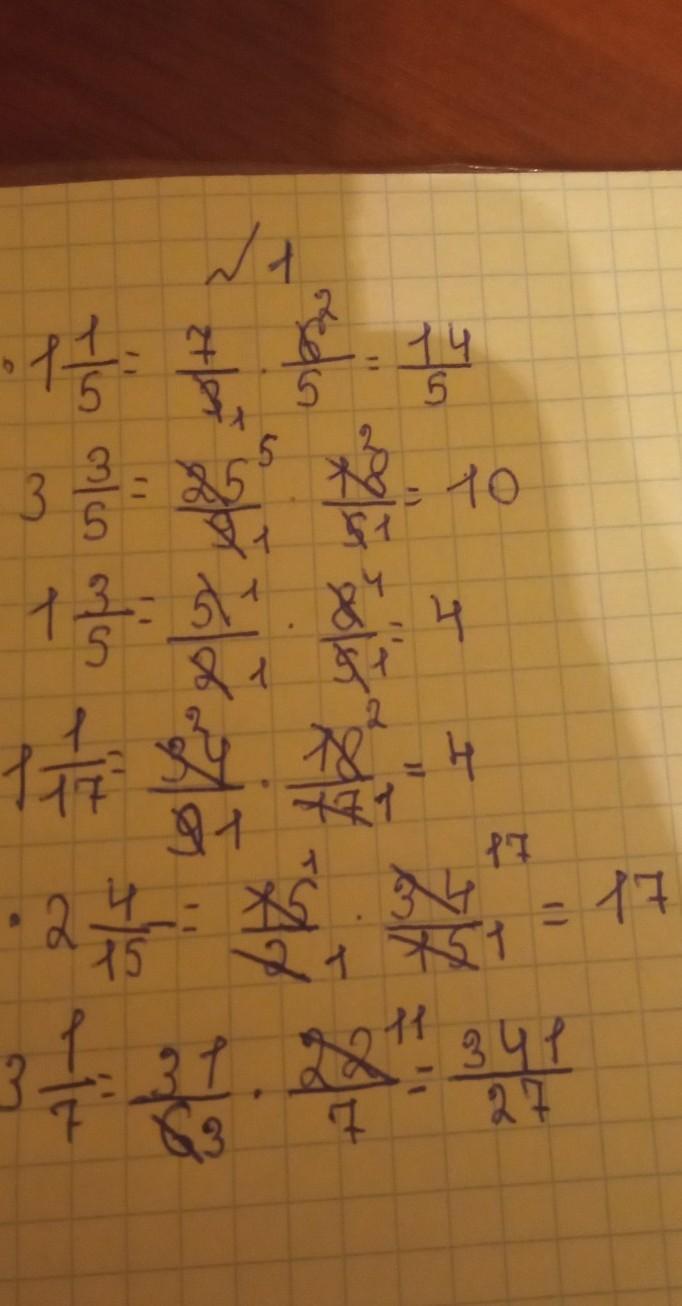 √ 1
· 1 1/5 = 7/3 1 · 6 2/5 = 14/5
3 3/5 = 25 5/9 1 · 18 2/5 1 = 10
1 3/5 = 5 1/2 1 · 8 4/5 1 = 4
1 1/17 = 34 2/9 1 · 18 2/17 1 = 4
· 2 4/15 = 15 1/2 1 · 34 17/15 1 = 17
3 1/7 = 31/6 3 · 22 11/7 = 341/27